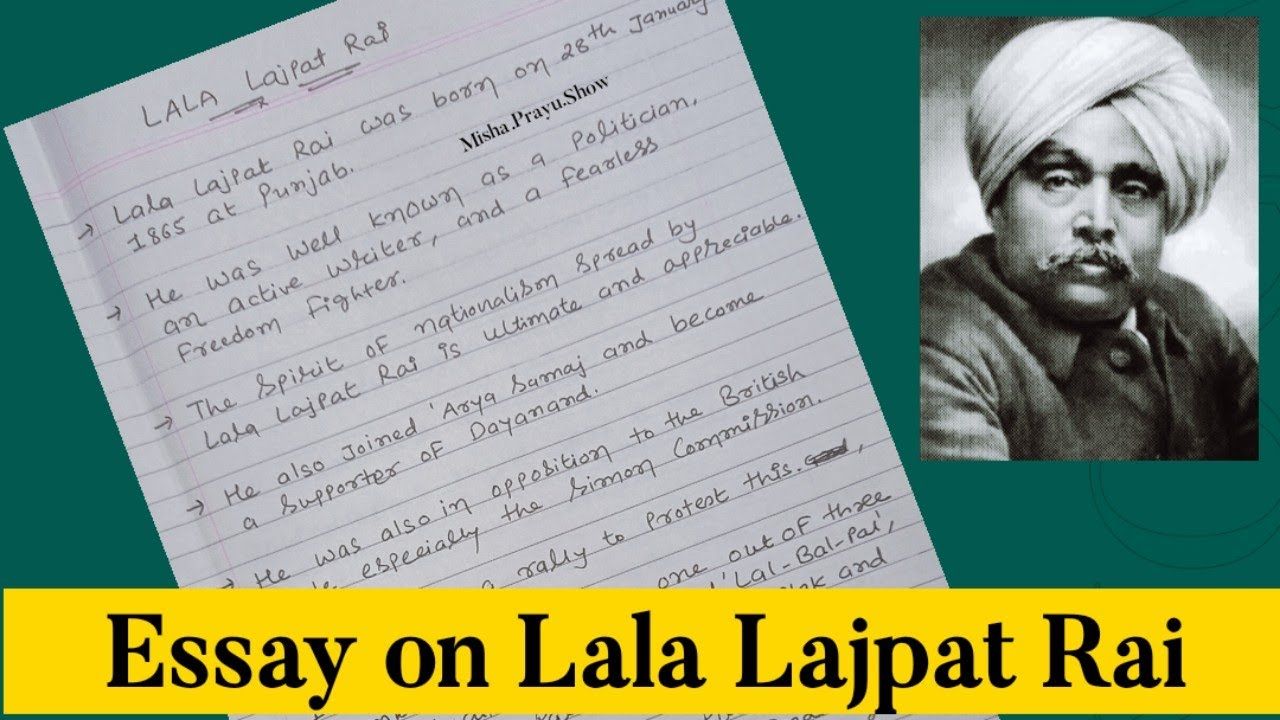 LALA Lajpat Rai
→ Lala Lajpat Rai was born on 28th January
1865 at Punjab.
Misha.Prayu.Show
→ He was well known as a politician,
an active writer, and a fearless
freedom fighter.
→ The spirit of nationalism spread by
Lala Lajpat Rai is ultimate and appreciable.
→ He also joined 'Arya Samaj and become
a supporter of Dayanand.
→ He was also in opposition to the British
especially the Simon Commission.
a rally to protest this.
one out of three
'Lal-Bal-Pal',
and
Essay on Lala Lajpat Rai